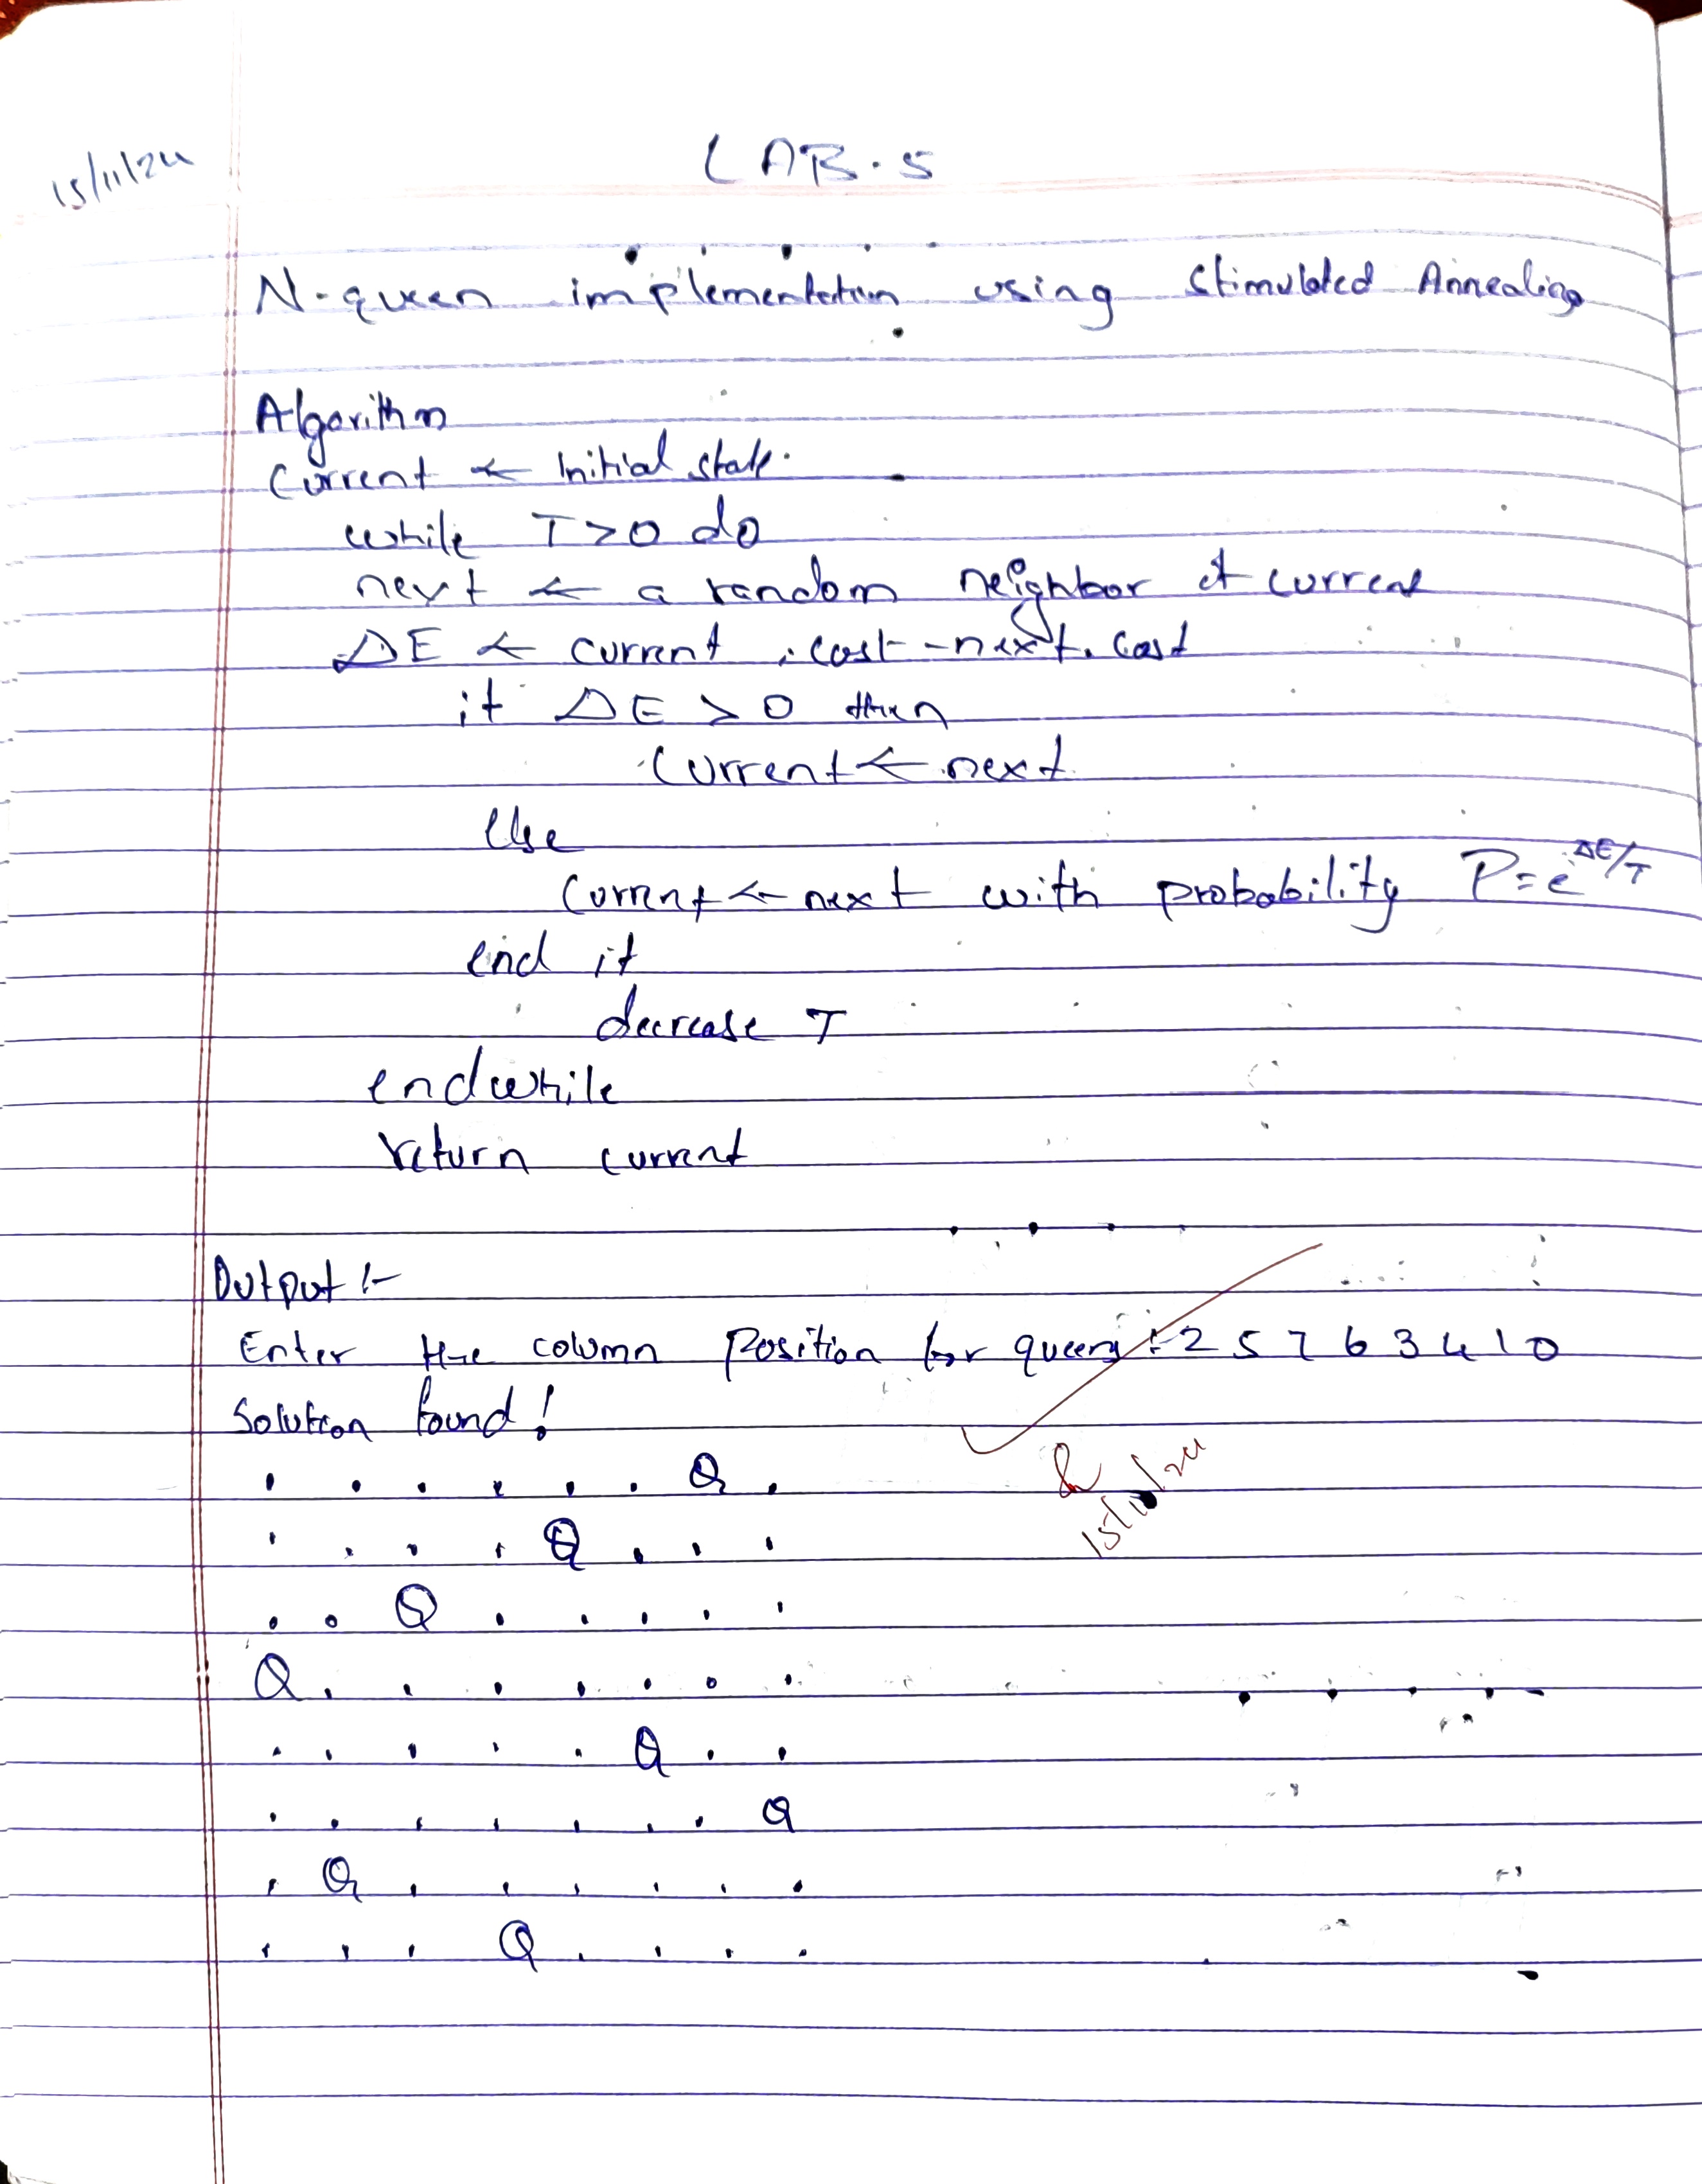 15/11/24
LAB-5
N-queen implementation using Stimulated Annealing
Algorithm
Current ← Initial state.
while T>0 do
next ← a random neighbor of current
ΔE ← current.cost - next.cost
if ΔE > 0 then
Current ← next
Else
Current ← next with probability P = e^ΔE/T
end if
decrease T
endwhile
return current
Output :-
Enter the column Position for queens :- 2 5 7 6 3 4 1 0
Solution found!
. . . . . . Q .
. . . . Q . . .
. . Q . . . . .
Q . . . . . . .
. . . . . Q . .
. . . . . . . Q
. Q . . . . . .
. . . Q . . . .
15/11/24